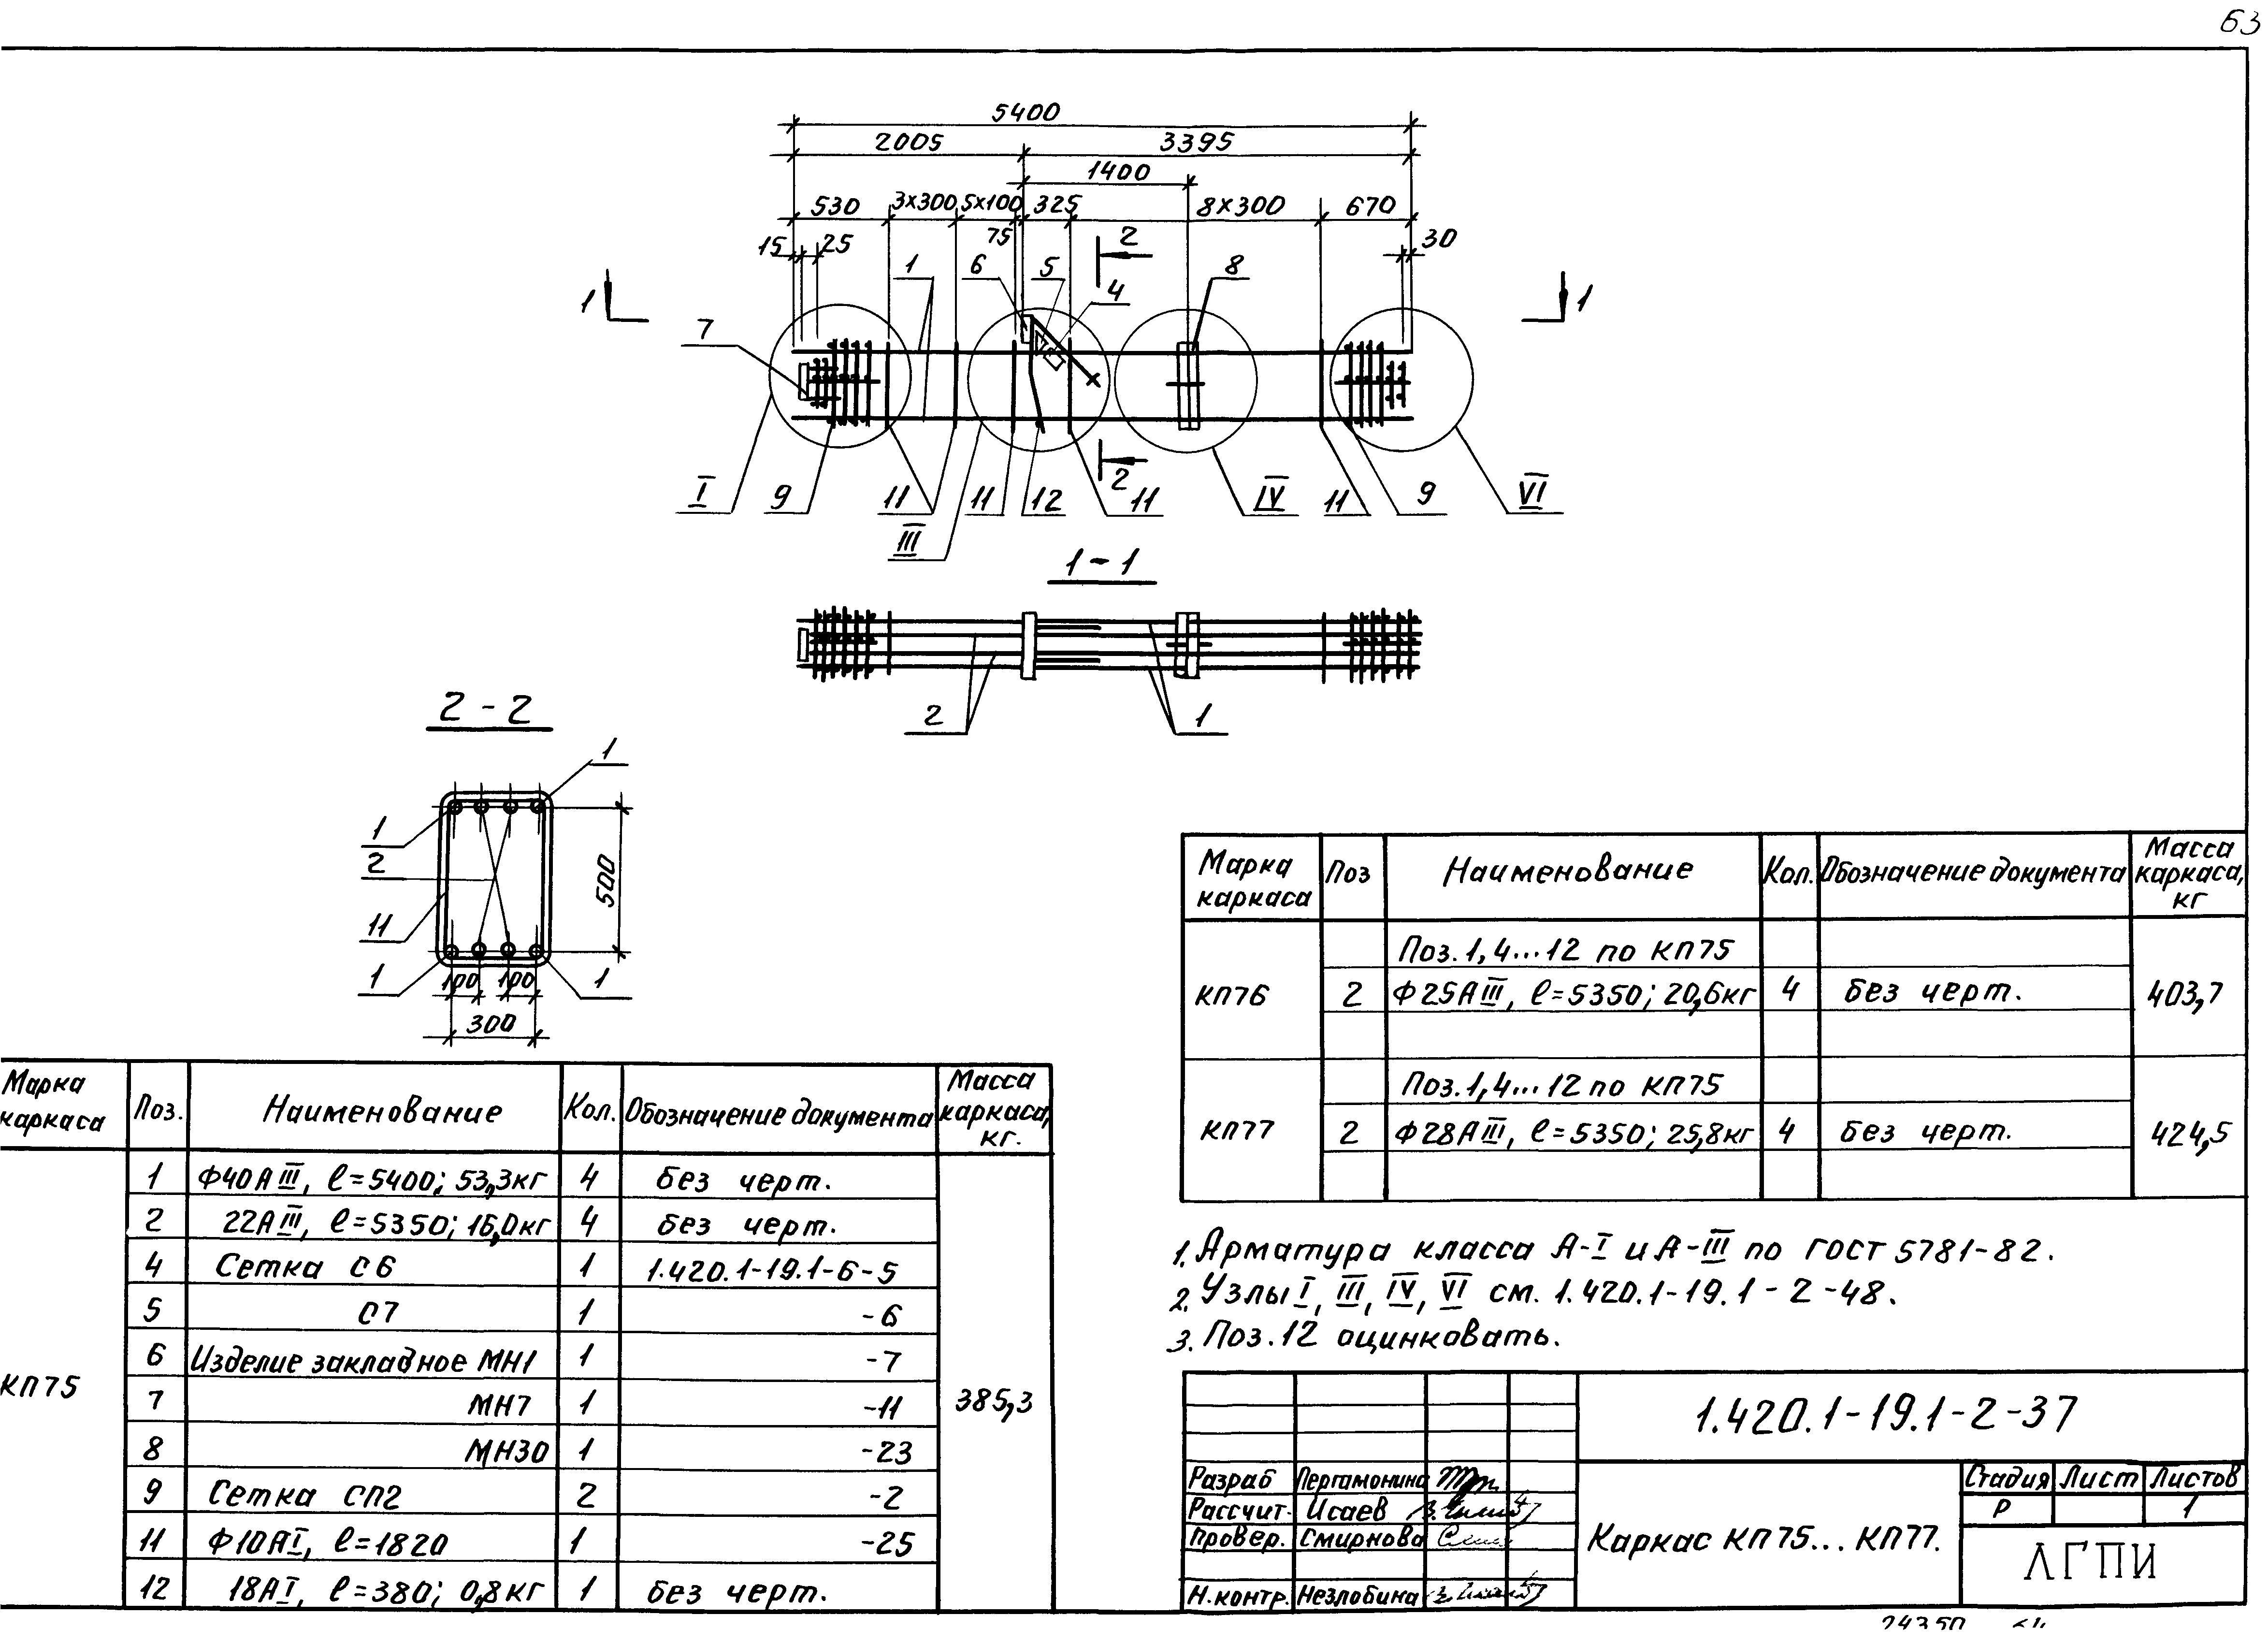 63
5400
2005 3395
1400
530 3х300 5х100 325 8х300 670
15 25 75 2 30
1 6 5 4 8
1 1
7
2
I 9 11 11 12 11 IV 11 9 VI
III
1-1
2 1
2-2
1
1
2
11
500
1 100 100 1
300
Марка каркаса Поз. Наименование Кол. Обозначение документа Масса каркаса, кг.
КП75 385,3
1 Ф40АIII, ℓ=5400; 53,3кг 4 без черт.
2 22АIII, ℓ=5350; 16,0кг 4 без черт.
4 Сетка С6 1 1.420.1-19.1-6-5
5 С7 1 -6
6 Изделие закладное МН1 1 -7
7 МН7 1 -11
8 МН30 1 -23
9 Сетка СП2 2 -2
11 Ф10АI, ℓ=1820 1 -25
12 18АI, ℓ=380; 0,8кг 1 без черт.
Марка каркаса Поз Наименование Кол. Обозначение документа Масса каркаса, кг
Поз.1,4...12 по КП75
КП76 2 Ф25АIII, ℓ=5350; 20,6кг 4 без черт. 403,7
Поз.1,4...12 по КП75
КП77 2 Ф28АIII, ℓ=5350; 25,8кг 4 без черт. 424,5
1. Арматура класса А-I и А-III по ГОСТ 5781-82.
2. Узлы I, III, IV, VI см. 1.420.1-19.1-2-48.
3. Поз.12 оцинковать.
1.420.1-19.1-2-37
Разраб Пергамонина
Рассчит. Исаев
Провер. Смирнова
Н.контр. Незлобина
Каркас КП75...КП77.
Стадия Лист Листов
Р 1
ЛГПИ
24350